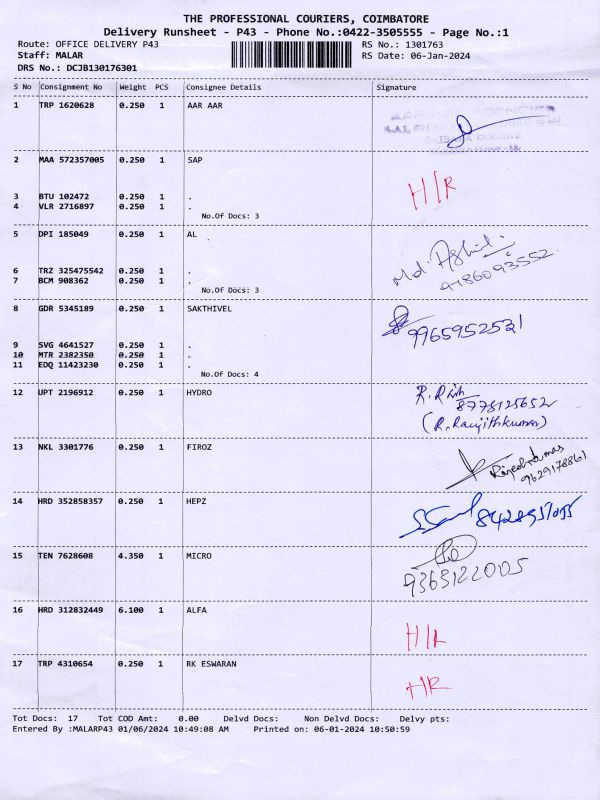 THE PROFESSIONAL COURIERS, COIMBATORE
Delivery Runsheet - P43 - Phone No.:0422-3505555 - Page No.:1
Route: OFFICE DELIVERY P43 RS No.: 1301763
Staff: MALAR RS Date: 06-Jan-2024
DRS No.: DCJB130176301
S No Consignment No Weight PCS Consignee Details Signature
1 TRP 1620628 0.250 1 AAR AAR
2 MAA 572357005 0.250 1 SAP
H/R
3 BTU 102472 0.250 1 .
4 VLR 2716897 0.250 1 .
No.Of Docs: 3
5 DPI 185049 0.250 1 AL .
Md. Ashid
9786093552
6 TRZ 325475542 0.250 1 .
7 BCM 908362 0.250 1 .
No.Of Docs: 3
8 GDR 5345189 0.250 1 SAKTHIVEL
9965952521
9 SVG 4641527 0.250 1 .
10 MTR 2382350 0.250 1 .
11 EDQ 11423230 0.250 1 .
No.Of Docs: 4
12 UPT 2196912 0.250 1 HYDRO
8778125652
(R. Ranjithkumar)
13 NKL 3301776 0.250 1 FIROZ
9629178861
14 HRD 352858357 0.250 1 HEPZ
15 TEN 7628608 4.350 1 MICRO
9363122005
16 HRD 312832449 6.100 1 ALFA
H/R
17 TRP 4310654 0.250 1 RK ESWARAN
HR
Tot Docs: 17 Tot COD Amt: 0.00 Delvd Docs: Non Delvd Docs: Delvy pts:
Entered By :MALARP43 01/06/2024 10:49:08 AM Printed on: 06-01-2024 10:50:59